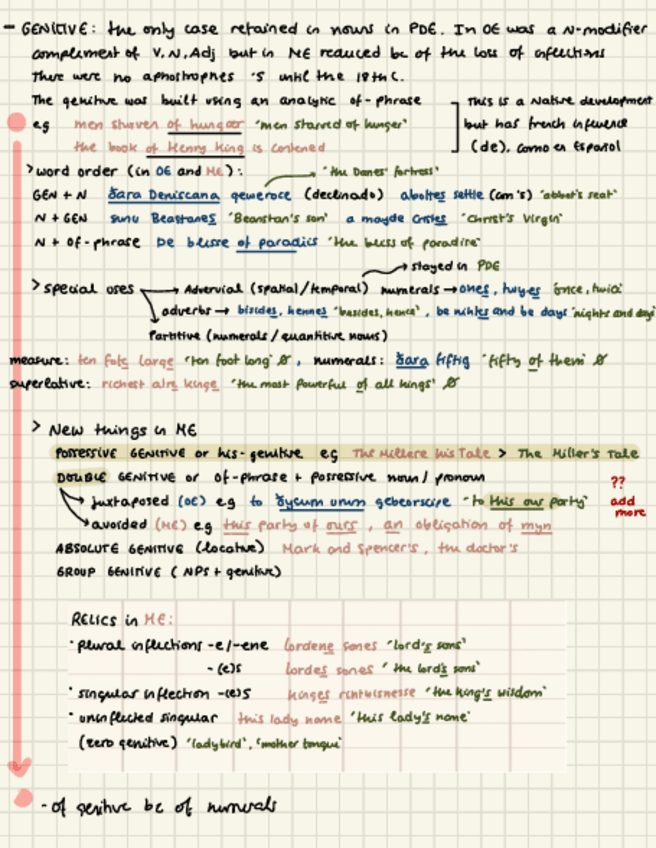 - GENITIVE: the only case retained in nouns in PDE. In OE was a N-modifier
complement of V, N, Adj but in ME reduced bc of the loss of inflections
There were no apostrophes 's until the 18th C.
The genitive was built using an analytic of-phrase
This is a Native development
but has french influence
(de), como en Español
eg men sturven of hungor "men starved of hunger"
the book of Henry King is contened
> word order (in OE and ME):
"the Danes' fortress"
GEN + N ðara Deniscana geweroce (declinado) abottes settle (ðm's) "abbot's seat"
N + GEN sunu Beastanes "Beanstan's son" a mayde Cristes "Christ's Virgin"
N + Of-phrase be blisse of paradics "the bliss of paradise"
stayed in PDE
> special uses Advervial (spatial/temporal) numerals → ones, twyes once, twice
adverbs → bisides, hennes "besides, hence", be nihtes and be days "nights and days"
Partitive (numerals / quantitive nouns)
measure: ten fote large "ten foot long" Ø, numerals: ðara fiftig "fifty of them" Ø
superlative: richest alre kinge "the most powerful of all kings" Ø
> New things in ME
POSSESSIVE GENITIVE or his-genitive eg The Millere his Tale > The Miller's Tale
DOUBLE GENITIVE or of-phrase + possessive noun / pronoun
??
juxtaposed (OE) eg to ðysum urum gebeorscipe "to this our party"
add
more
avoided (ME) eg this party of ours, an obligation of myn
ABSOLUTE GENITIVE (locative) Mark and Spencer's, the doctor's
GROUP GENITIVE (NPs + genitive)
RELICS in ME:
· plural inflections -e/-ene lordene sones "lord's sons"
-(e)s lordes sones "the lord's sons"
· singular inflection -(e)s kinges "the king's wisdom"
· uninflected singular this lady name "this lady's name"
(zero genitive) "ladybird", "mother tongue"
- of genitive bc of numerals